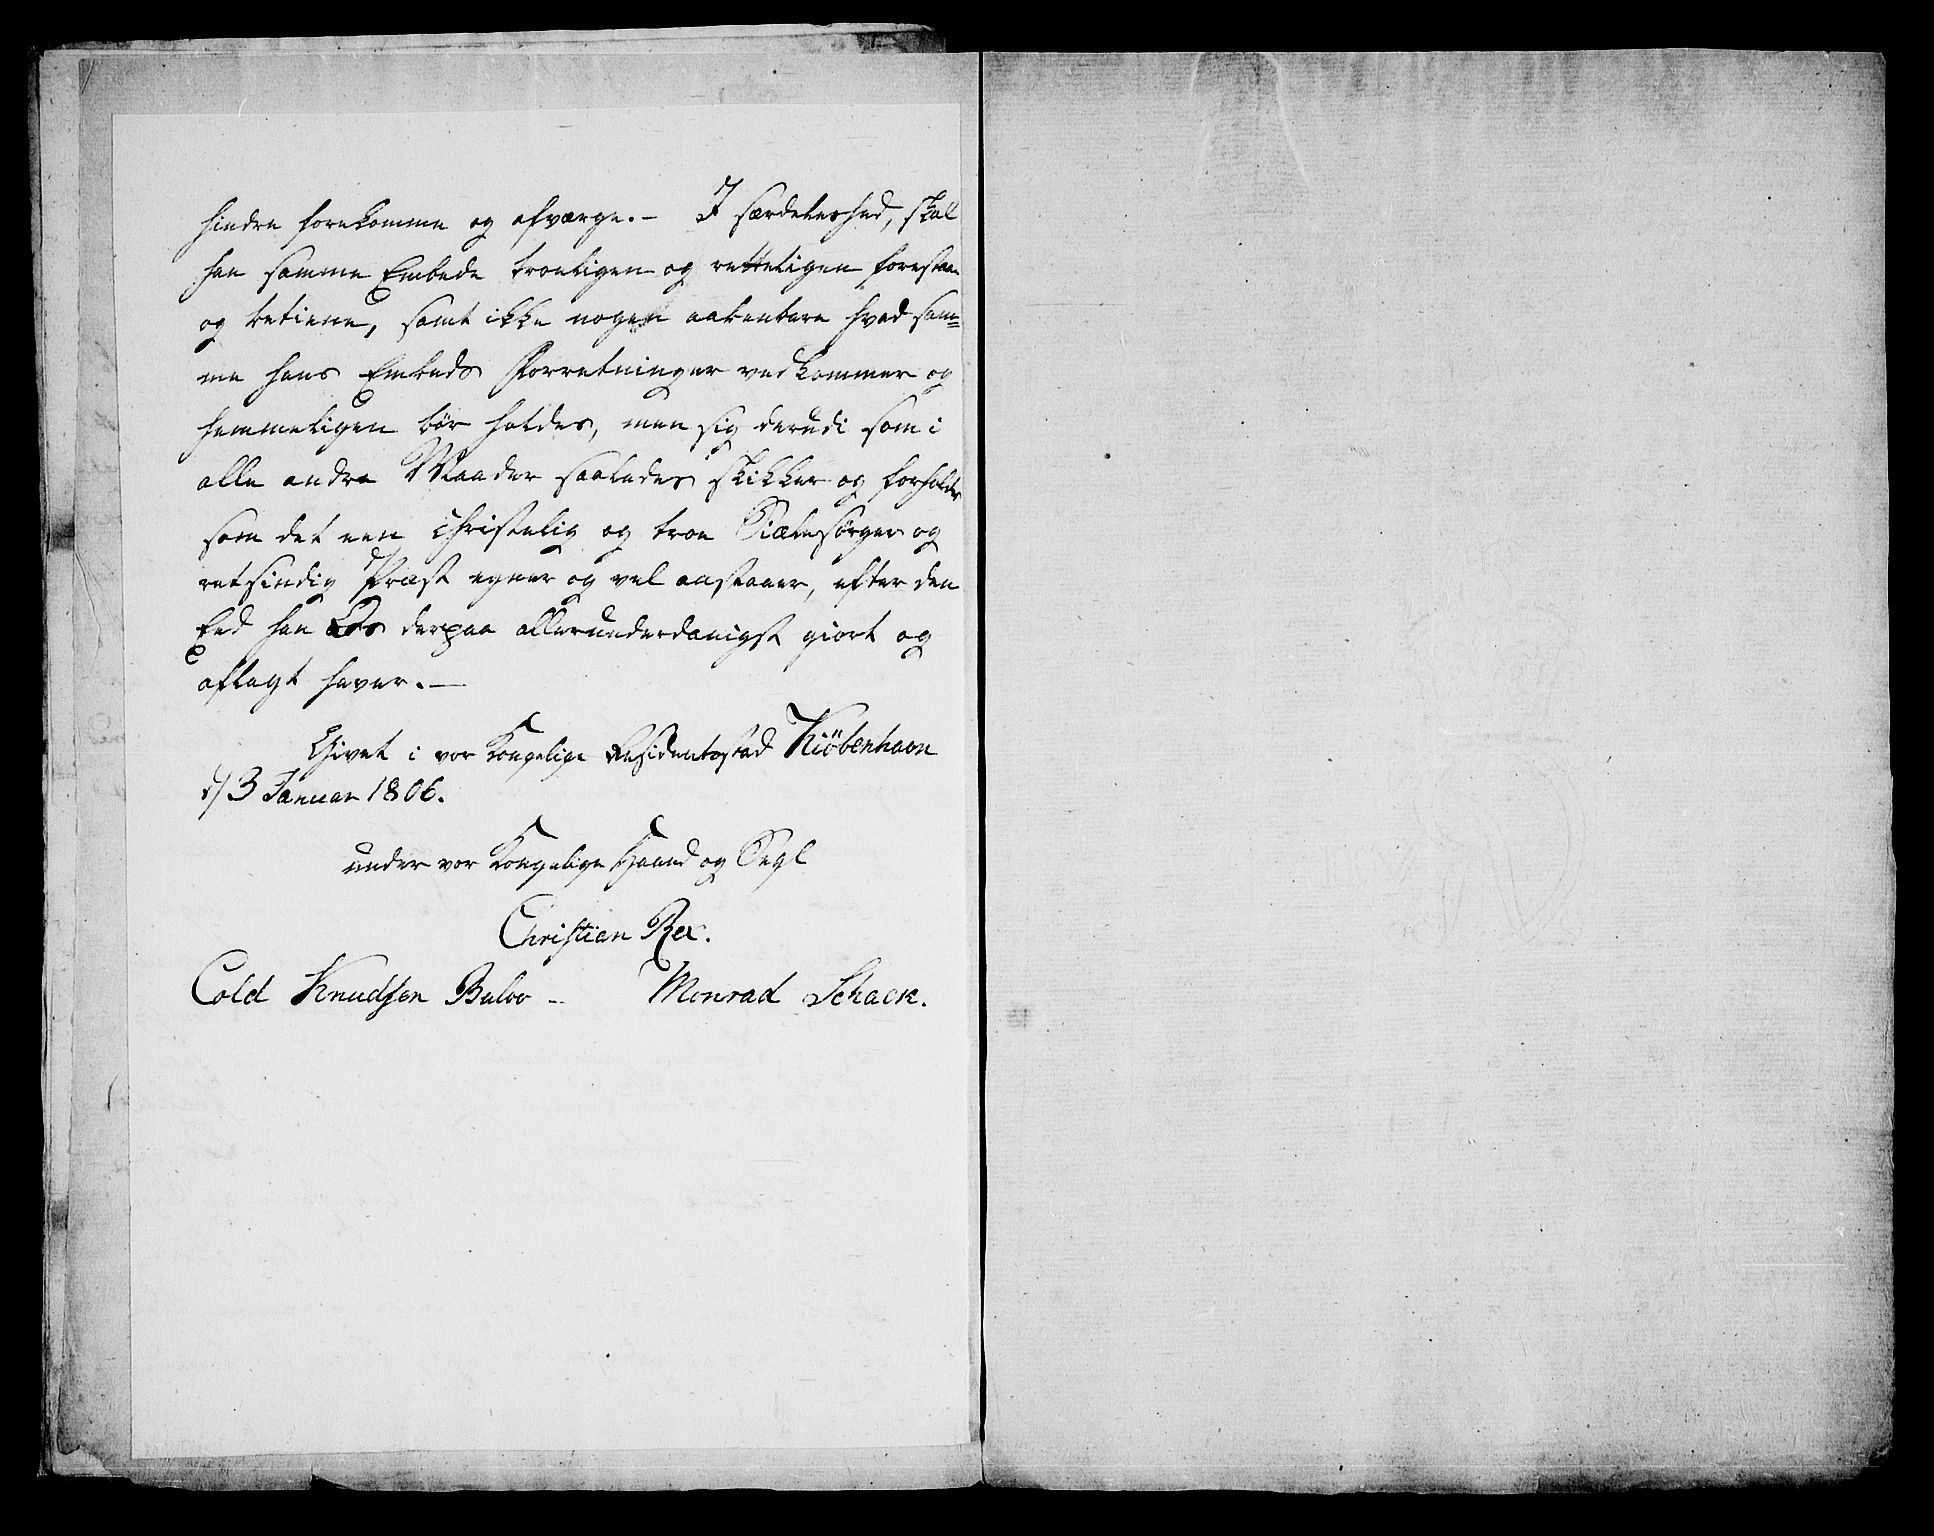 hindre forekomme og afværge. – I særdeleshed, skal
han samme Embede troeligen og retteligen forestaae
og betiene, samt ikke nogen aabenbare hvad sam=
me hans Embeds Forretninger vedkommer og
hemmeligen bør holdes, men sig derudi som i
alle andre Maader saaledes skikker og forholder
som det een christelig og troe Siælesørger og
retsindig Præst egner og vel anstaaer, efter den
Eed han Os derpaa allerunderdanigst giort og
aflagt haver. —
Givet i vor Kongelige Residentzstad Kiöbenhavn
d/ 3 Januar 1806.
under vor Kongelige Haand og Segl
Christian Rex.
Cold Knudsen Bulow – Monrad Schack.